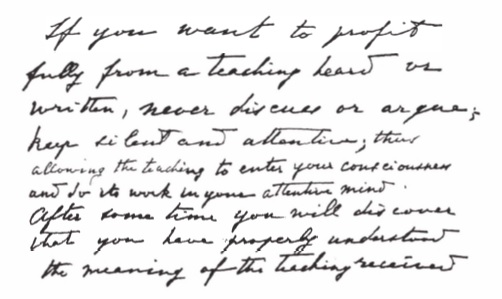 If you want to profit
fully from a teaching heard or
written, never discuss or argue;
keep silent and attentive; thus
allowing the teaching to enter your consciousness
and do its work in your attentive mind.
After some time you will discover
that you have properly understood
the meaning of the teaching received